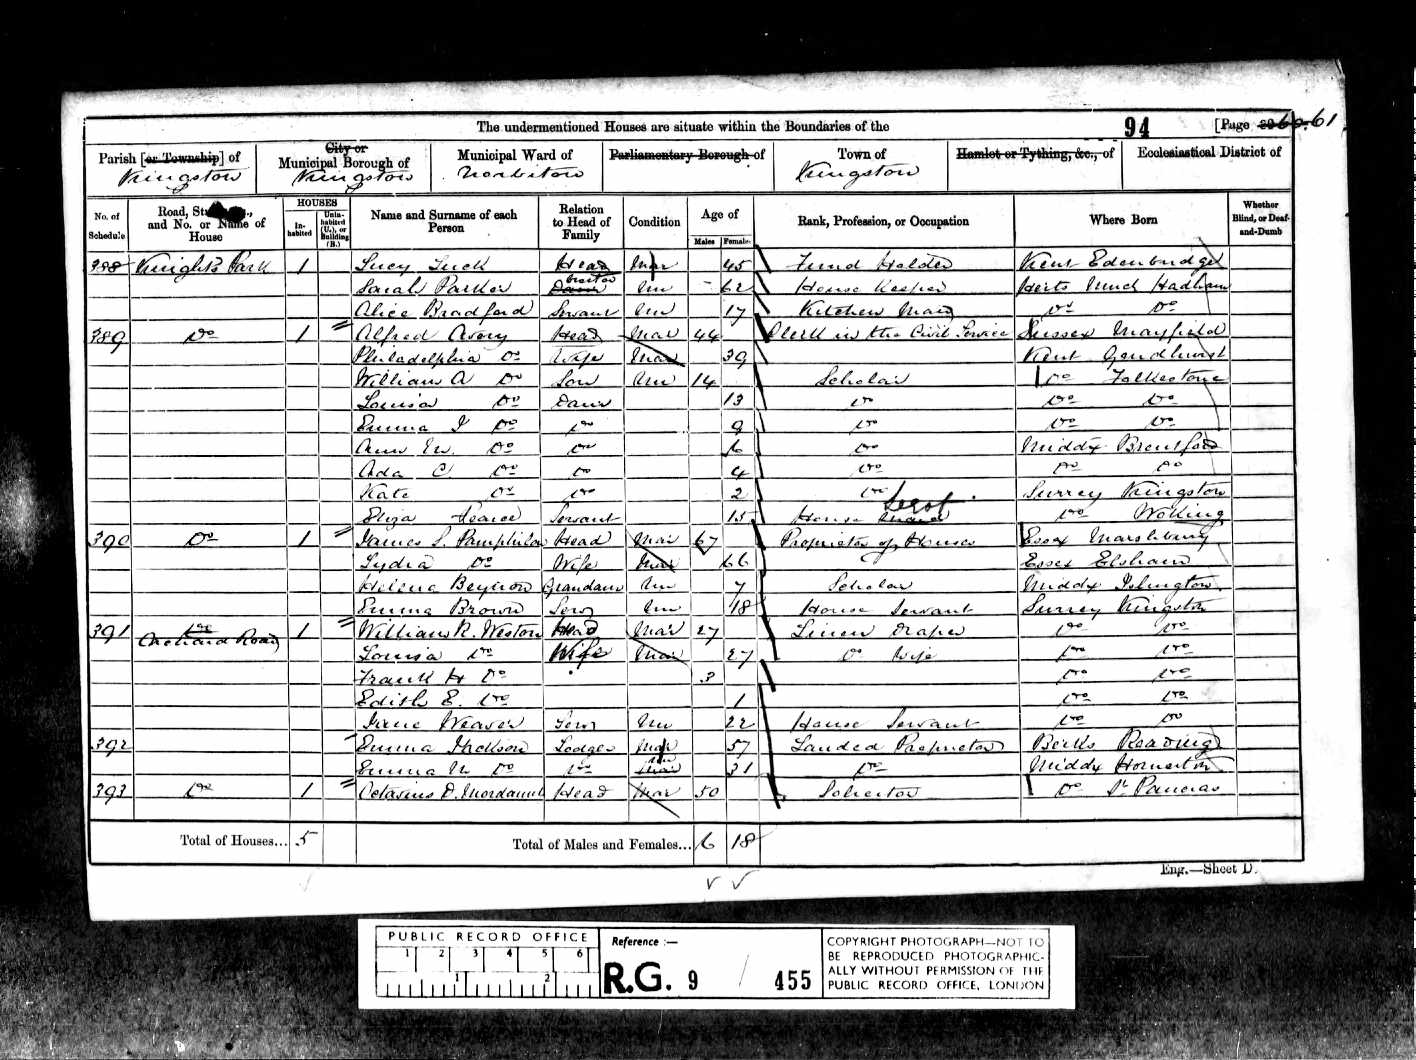 The undermentioned Houses are situate within the Boundaries of the 94 [Page 61
Parish [or Township] of City or Municipal Borough of Municipal Ward of Parliamentary Borough of Town of Hamlet or Tything, &c., of Ecclesiastical District of
Kingston Kingston Norbiton Kingston
No. of Schedule Road, Street, &c., and No. or Name of House HOUSES Inhabited Uninhabited (U.), or Building (B.) Name and Surname of each Person Relation to Head of Family Condition Age of Males Females Rank, Profession, or Occupation Where Born Whether Blind, or Deaf-and-Dumb
388 Knights Park 1 Lucy Tuck Head 45 Fund Holder Kent Edenbridge
Sarah Parker Un 62 House Keeper Herts Much Hadham
Alice Bradford Servant Un 17 Kitchen Maid Do Do
389 Do 1 Alfred Avery Head Mar 44 Clerk in the Civil Service Sussex Mayfield
Philadelphia Do Wife Mar 39 Kent Goudhurst
William A Do Son Un 14 Scholar Do Folkestone
Louisa Do Daur 13 Do Do Do
Emma J Do Do 9 Do Do Do
Ann M. Do Do 6 Do Middx Brentford
Ada C Do Do 4 Do Do Do
Kate Do Do 2 Do Surrey Kingston
Eliza Pearce Servant 15 House Servt Do Woking
390 Do 1 James S. Pamphilon Head Mar 67 Proprietor of Houses Essex
Lydia Do Wife Mar 66 Essex Elsham
Helena Beynon Grandaur Un 7 Scholar Middx Islington
Emma Brown Serv Un 18 House Servant Surrey Kingston
391 Do Orchard Road 1 William R. Weston Head Mar 27 Linen Draper Do Do
Louisa Do Wife Mar 27 Do Wife Do Do
Frank H Do 3 Do Do
Edith E. Do 1 Do Do
Jane Weaver Serv Un 22 House Servant Do Do
392 Emma Jackson Lodger 57 Landed Proprietor Berks Reading
Emma N Do Do Un 31 Do Middx Homerton
393 Do 1 Octavius D. Mordaunt Head Mar 50 Solicitor Do St Pancras
Total of Houses... 5 Total of Males and Females... 6 18
Eng.—Sheet D.
PUBLIC RECORD OFFICE
1 2 3 4 5 6
1 2
Reference :—
R.G. 9 / 455
COPYRIGHT PHOTOGRAPH—NOT TO
BE REPRODUCED PHOTOGRAPHIC-
ALLY WITHOUT PERMISSION OF THE
PUBLIC RECORD OFFICE, LONDON